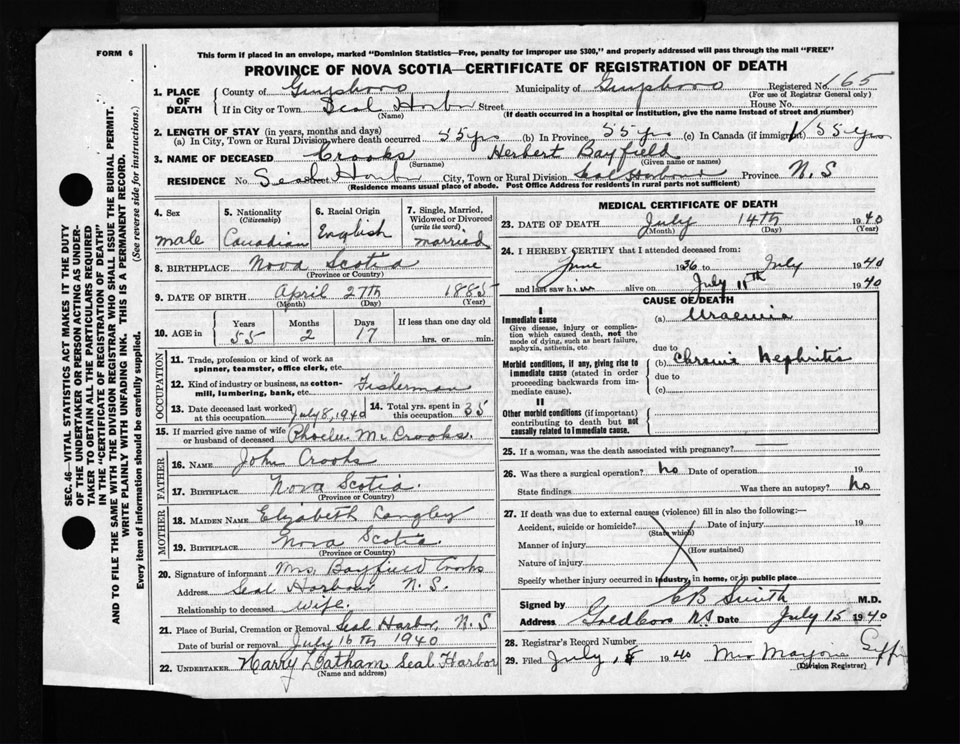 FORM 6
This form if placed in an envelope, marked "Dominion Statistics—Free, penalty for improper use $300," and properly addressed will pass through the mail "FREE"
PROVINCE OF NOVA SCOTIA—CERTIFICATE OF REGISTRATION OF DEATH
1. PLACE OF DEATH County of Guysboro Municipality of Guysboro Registered No. 165
(For use of Registrar General only)
If in City or Town Seal Harbor Street House No.
(Name) (If death occurred in a hospital or institution, give the name instead of street and number)
2. LENGTH OF STAY (in years, months and days)
(a) In City, Town or Rural Division where death occurred 55 yrs (b) In Province 55 yrs (c) In Canada (if immigrant) 55 yrs
3. NAME OF DECEASED Crooks Herbert Bayfield
(Surname) (Given name or names)
RESIDENCE No. Street Seal Harbor City, Town or Rural Division Seal Harbour Province N.S
(Residence means usual place of abode. Post Office Address for residents in rural parts not sufficient)
4. Sex male
5. Nationality (Citizenship) Canadian
6. Racial Origin English
7. Single, Married, Widowed or Divorced (write the word) married
8. BIRTHPLACE Nova Scotia
(Province or Country)
9. DATE OF BIRTH April 27th 1885
(Month) (Day) (Year)
10. AGE in Years 55 Months 2 Days 17 If less than one day old hrs. or min.
OCCUPATION
11. Trade, profession or kind of work as spinner, teamster, office clerk, etc.
12. Kind of industry or business, as cotton-mill, lumbering, bank, etc. Fisherman
13. Date deceased last worked at this occupation July 8, 1940
14. Total yrs. spent in this occupation 35
15. If married give name of wife or husband of deceased Phoebe M. Crooks.
FATHER
16. NAME John Crooks
17. BIRTHPLACE Nova Scotia.
(Province or Country)
MOTHER
18. MAIDEN NAME Elizabeth Langley
19. BIRTHPLACE Nova Scotia.
(Province or Country)
20. Signature of informant Mrs. Bayfield Crooks
Address Seal Harbour N.S.
Relationship to deceased Wife.
21. Place of Burial, Cremation or Removal Seal Harbor, N.S
Date of burial or removal July 16th 1940
22. UNDERTAKER Harry Latham Seal Harbor
(Name and address)
MEDICAL CERTIFICATE OF DEATH
23. DATE OF DEATH July 14th 1940
(Month) (Day) (Year)
24. I HEREBY CERTIFY that I attended deceased from:
June 1936 to July 1940
and last saw him alive on July 11th 1940
CAUSE OF DEATH
I
Immediate cause (a) Uraemia
Give disease, injury or complication which caused death, not the mode of dying, such as heart failure, asphyxia, asthenia, etc
due to
Morbid conditions, if any, giving rise to immediate cause (stated in order proceeding backwards from immediate cause).
(b) Chronic Nephritis
due to
(c)
II
Other morbid conditions (if important) contributing to death but not causally related to immediate cause.
25. If a woman, was the death associated with pregnancy?
26. Was there a surgical operation? no Date of operation 19
State findings Was there an autopsy? no
27. If death was due to external causes (violence) fill in also the following:—
Accident, suicide or homicide? Date of injury 19
(State which)
Manner of injury
(How sustained)
Nature of injury
Specify whether injury occurred in industry, in home, or in public place
Signed by C B Smith M.D.
Address Goldboro NS Date July 15 1940
28. Registrar's Record Number
29. Filed July, 1940 Mrs Marjorie Giffin
(Division Registrar)
SEC. 46—VITAL STATISTICS ACT MAKES IT THE DUTY
OF THE UNDERTAKER OR PERSON ACTING AS UNDER-
TAKER TO OBTAIN ALL THE PARTICULARS REQUIRED
IN THE "CERTIFICATE OF REGISTRATION OF DEATH"
AND TO FILE THE SAME WITH THE DIVISION REGISTRAR WHO SHALL ISSUE THE BURIAL PERMIT.
WRITE PLAINLY WITH UNFADING INK. THIS IS A PERMANENT RECORD.
Every item of information should be carefully supplied. (See reverse side for instructions.)